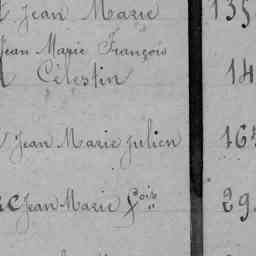 Jean Marie 135
Jean Marie François
Célestin 14
Jean Marie Julien 16
Jean-Marie Fçois 29